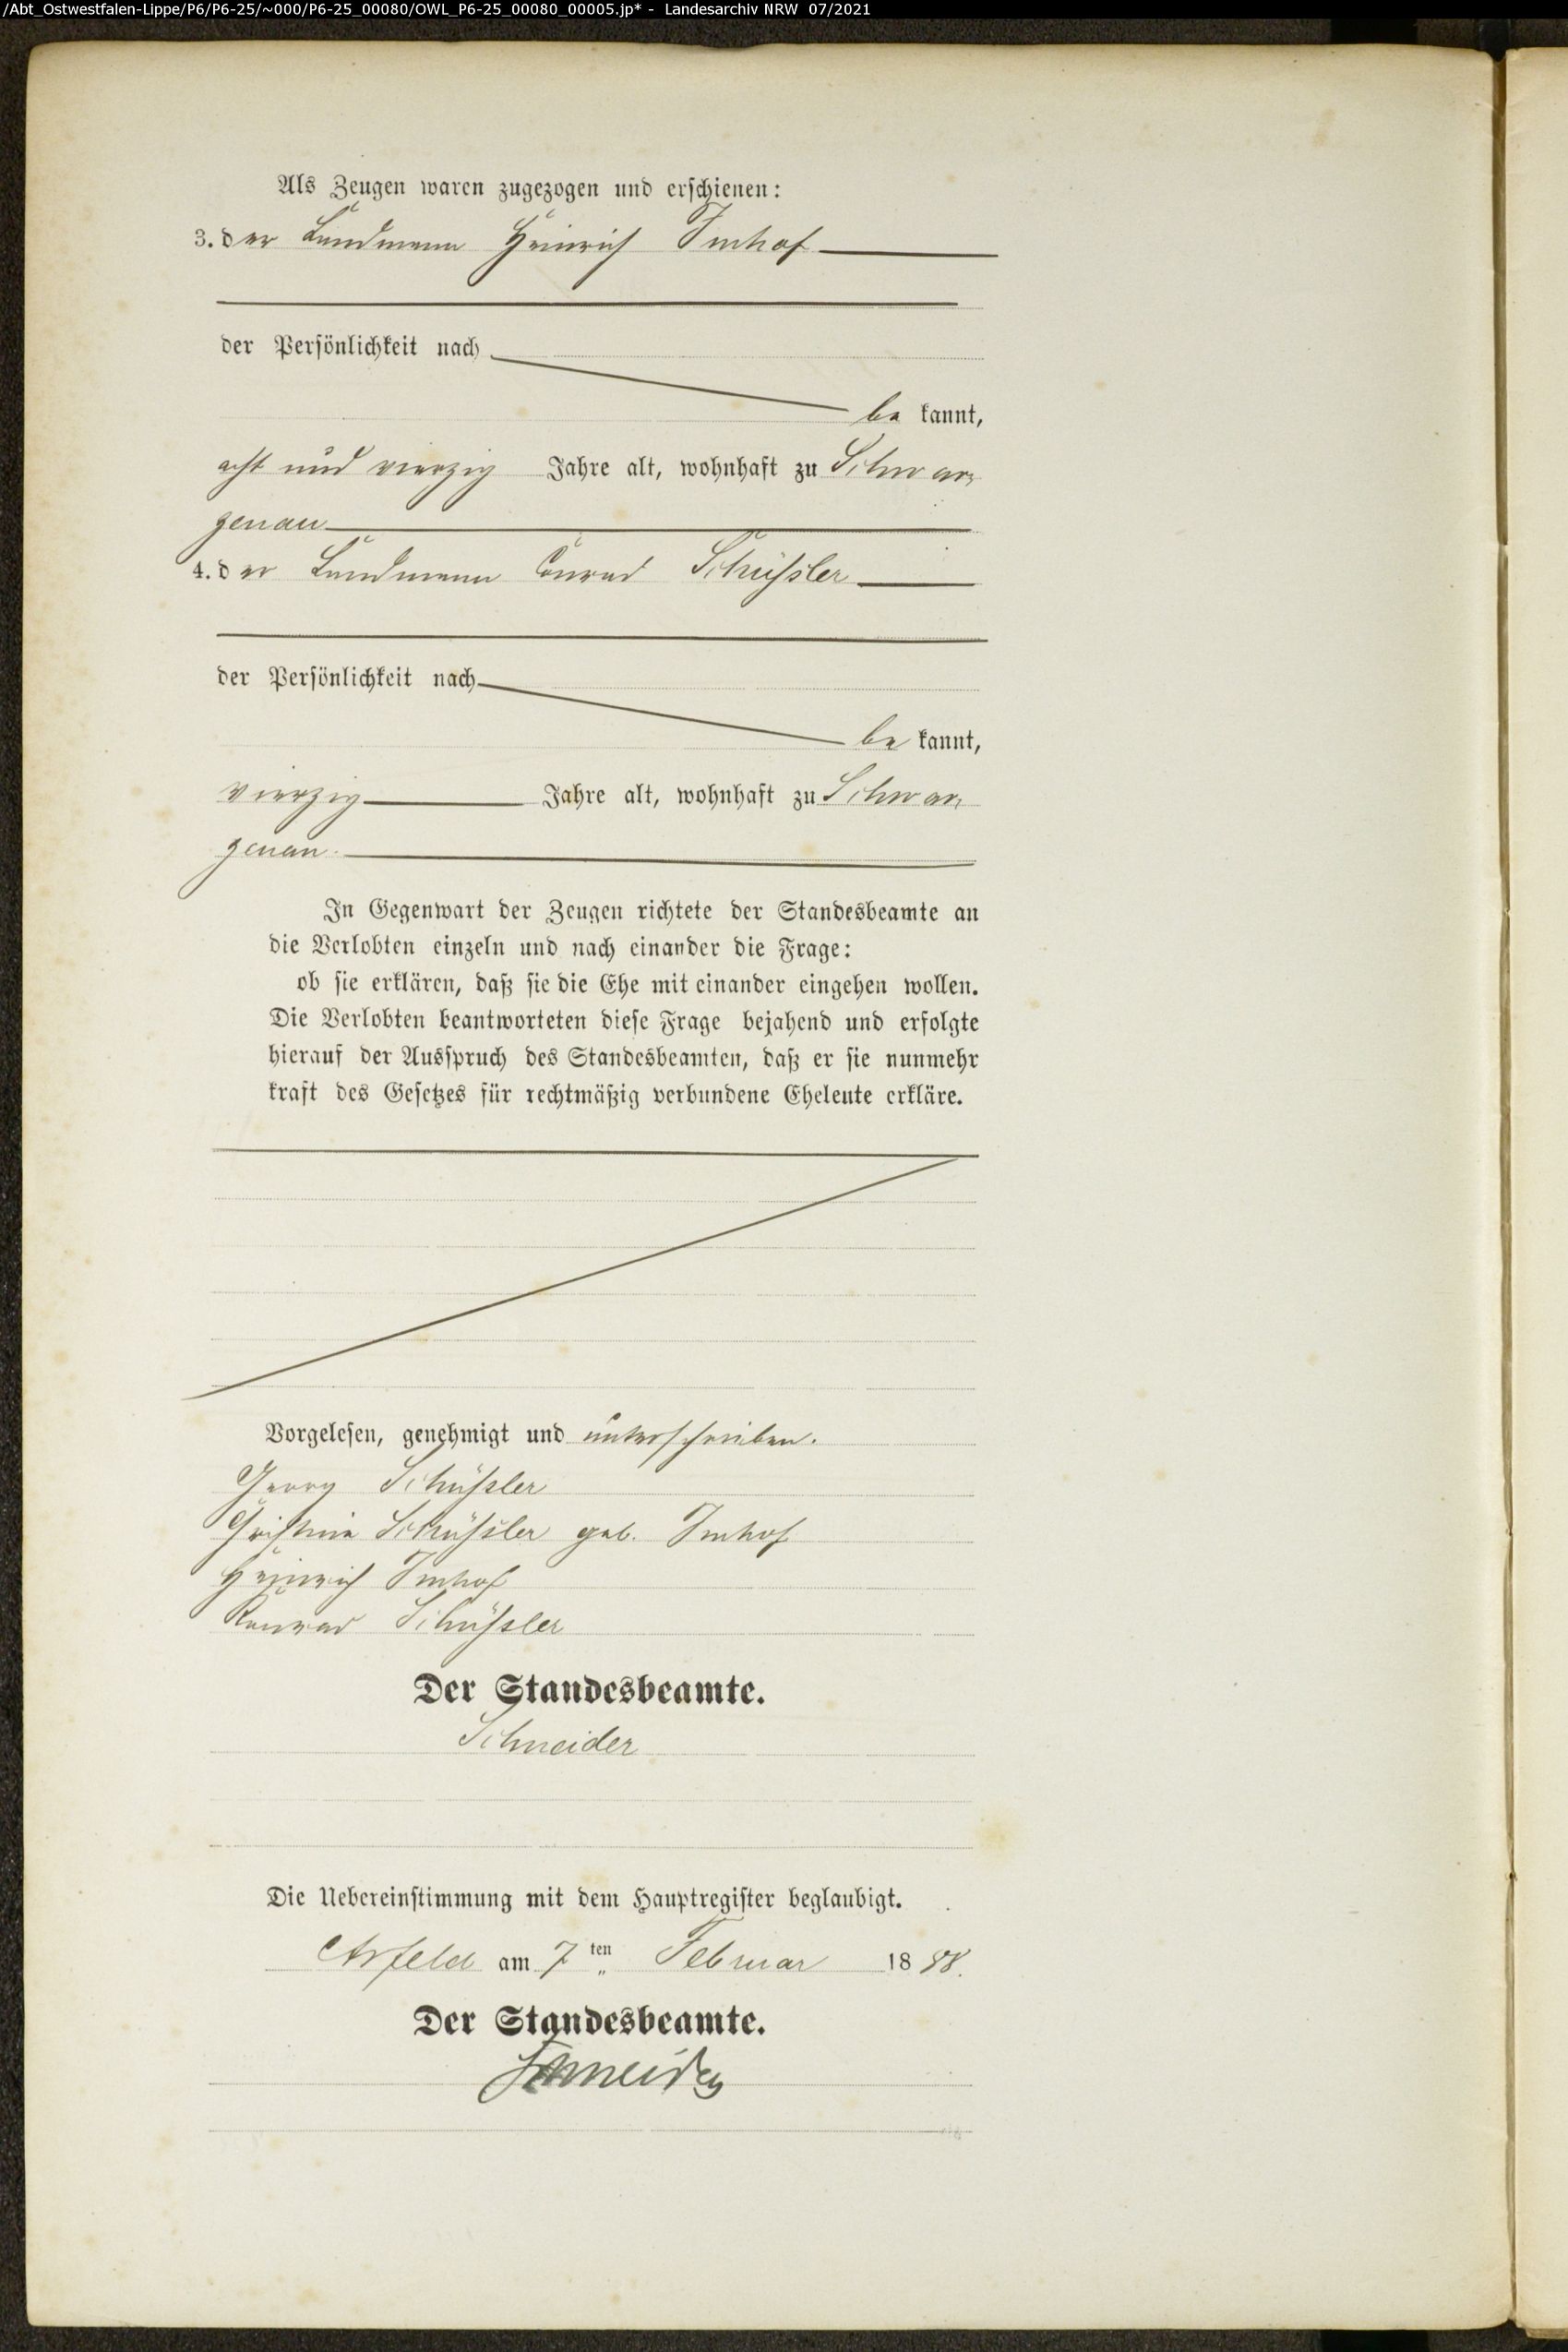 /Abt_Ostwestfalen-Lippe/P6/P6-25/~000/P6-25_00080/OWL_P6-25_00080_00005.jp* - Landesarchiv NRW 07/2021
Als Zeugen waren zugezogen und erschienen:
3. der Landmann Heinrich Imhof
der Persönlichkeit nach
be kannt,
acht und vierzig Jahre alt, wohnhaft zu Schwar
zenau
4. der Landmann Conrad Schüssler
der Persönlichkeit nach
be kannt,
vierzig Jahre alt, wohnhaft zu Schwar
zenau.
In Gegenwart der Zeugen richtete der Standesbeamte an
die Verlobten einzeln und nach einander die Frage:
ob sie erklären, daß sie die Ehe mit einander eingehen wollen.
Die Verlobten beantworteten diese Frage bejahend und erfolgte
hierauf der Ausspruch des Standesbeamten, daß er sie nunmehr
kraft des Gesetzes für rechtmäßig verbundene Eheleute erkläre.
Vorgelesen, genehmigt und unterschrieben.
Georg Schüssler
Christine Schüssler geb. Imhof
Heinrich Imhof
Konrad Schüssler
Der Standesbeamte.
Schneider
Die Uebereinstimmung mit dem Hauptregister beglaubigt.
Arfeld am 7ten Februar 1888.
Der Standesbeamte.
Schneider